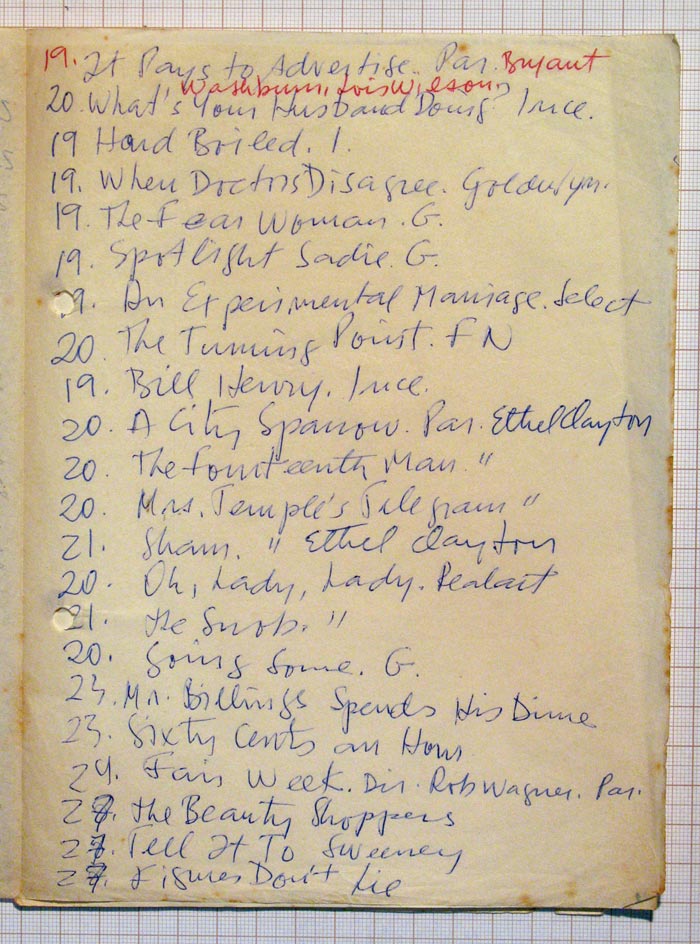 19. It Pays to Advertise. Par. Bryant
Washburn, Lois Wilson
20. What's Your Husband Doing? Ince.
19 Hard Boiled. I.
19. When Doctors Disagree. Goldwyn.
19. The Fear Woman. G.
19. Spotlight Sadie. G.
9. An Experimental Marriage. Select
20. The Turning Point. FN
19. Bill Henry. Ince.
20. A City Sparrow. Par. Ethel Clayton
20. The Fourteenth Man. "
20. Mrs. Temple's Telegram "
21. Sham. " Ethel Clayton
20. Oh, Lady, Lady. Realart
21. The Snob. "
20. Going Some. G.
23. Mr. Billings Spends His Dime
23. Sixty Cents an Hour
24. Fair Week. Dir. Rob Wagner. Par.
27. The Beauty Shoppers
27. Tell It To Sweeney
27. Figures Don't Lie